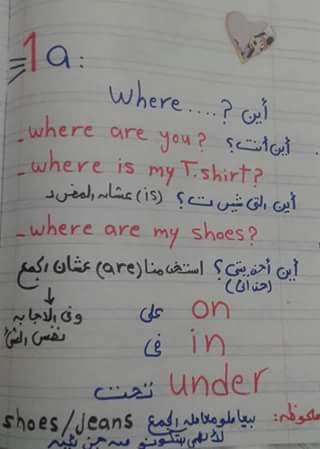 1a:
Where....? أين
- where are you? أين أنت؟
- where is my T.shirt?
أين التي شيرت؟ (is) عشان المفرد
- where are my shoes?
أين أحذيتي؟ استخدمنا (are) عشان الجمع
(حذائي)
وفى الاجابه
نفس الشئ
on على
in فى
under تحت
ملحوظه: shoes/jeans بيعاملو معامله الجمع
لأنهم بيتكونو من جزئين